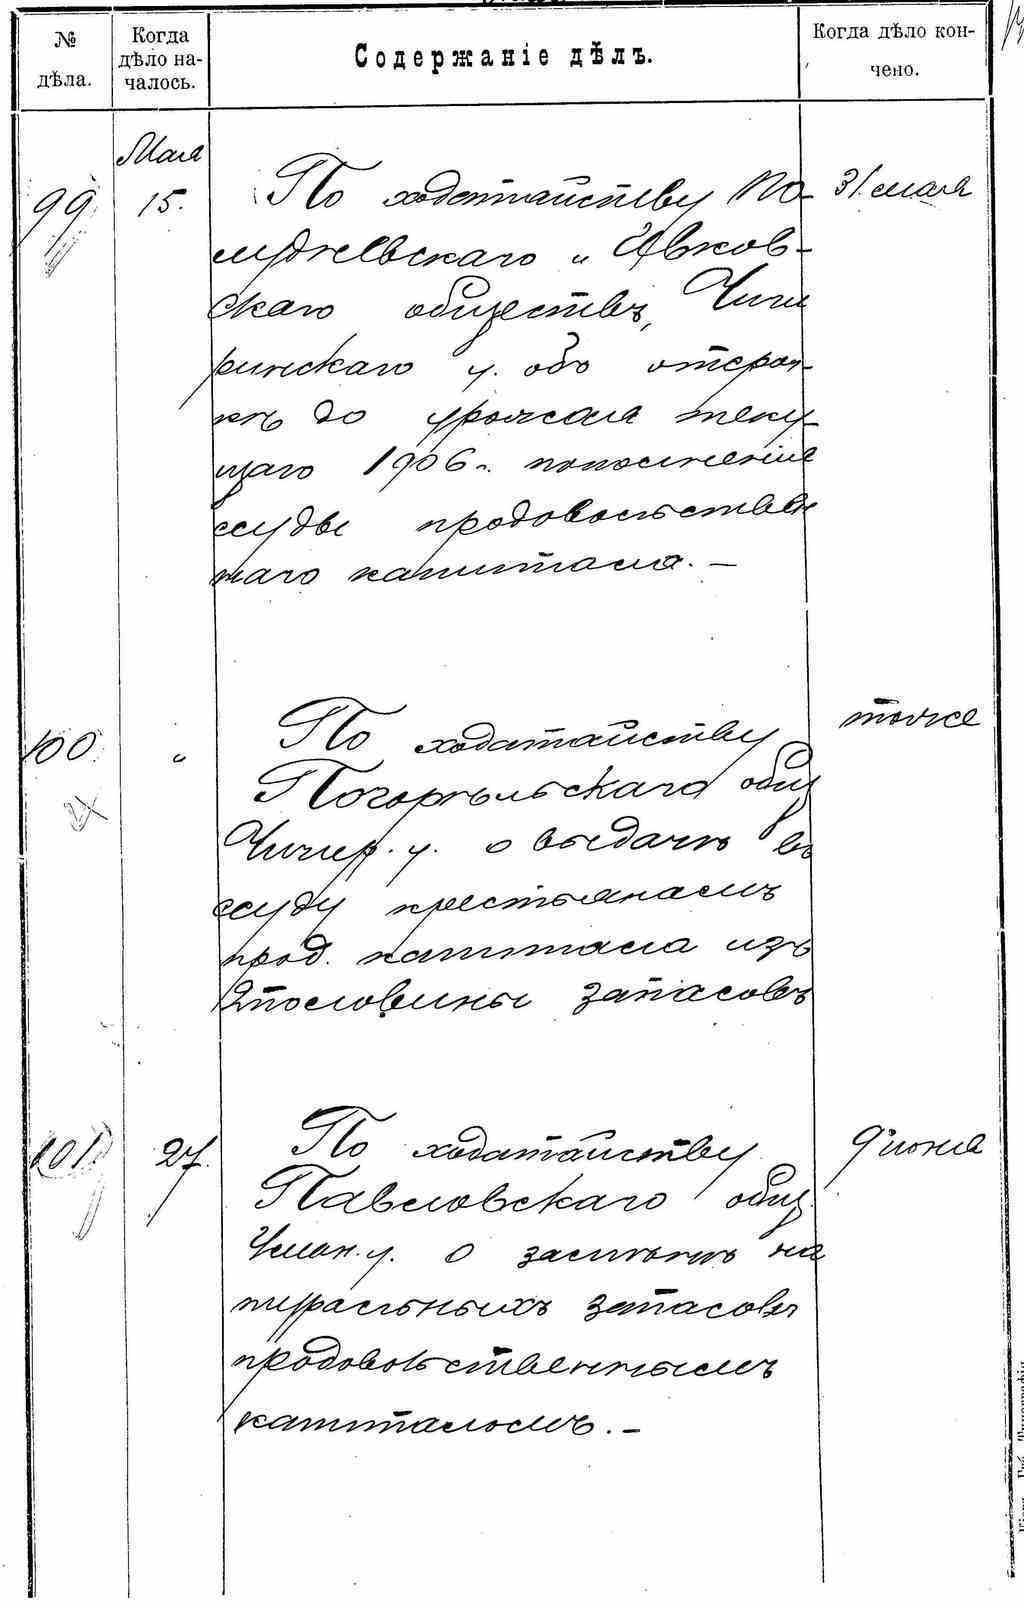 № дѣла.
Когда дѣло на-чалось.
Содержаніе дѣлъ.
Когда дѣло кон-чено.
Мая
99 15. По ходатайству По- 31 мая
лудневскаго и Ивков-
скаго обществъ, Чиги
ринскаго у. объ отсроч-
кѣ до урожая теку-
щаго 1906 г. пополненія
ссуды продовольствен
наго капитала. –
100 „ По ходатайству тоже
Погорѣльскаго общ
Чигир. у. о выдачѣ въ
ссуду крестьянамъ
прод. капитала изъ
½ половины запасовъ
101 27. По ходатайству 9 іюня
Павловскаго общ.
Уман. у. о замѣнѣ на
туральныхъ запасовъ
продовольственнымъ
капиталомъ. –